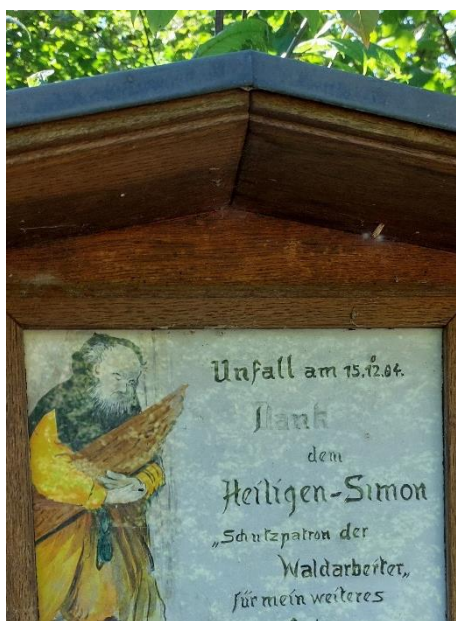 Unfall am 15.12.04.
Dank
dem
Heiligen-Simon
„Schutzpatron der
Waldarbeiter„
für mein weiteres